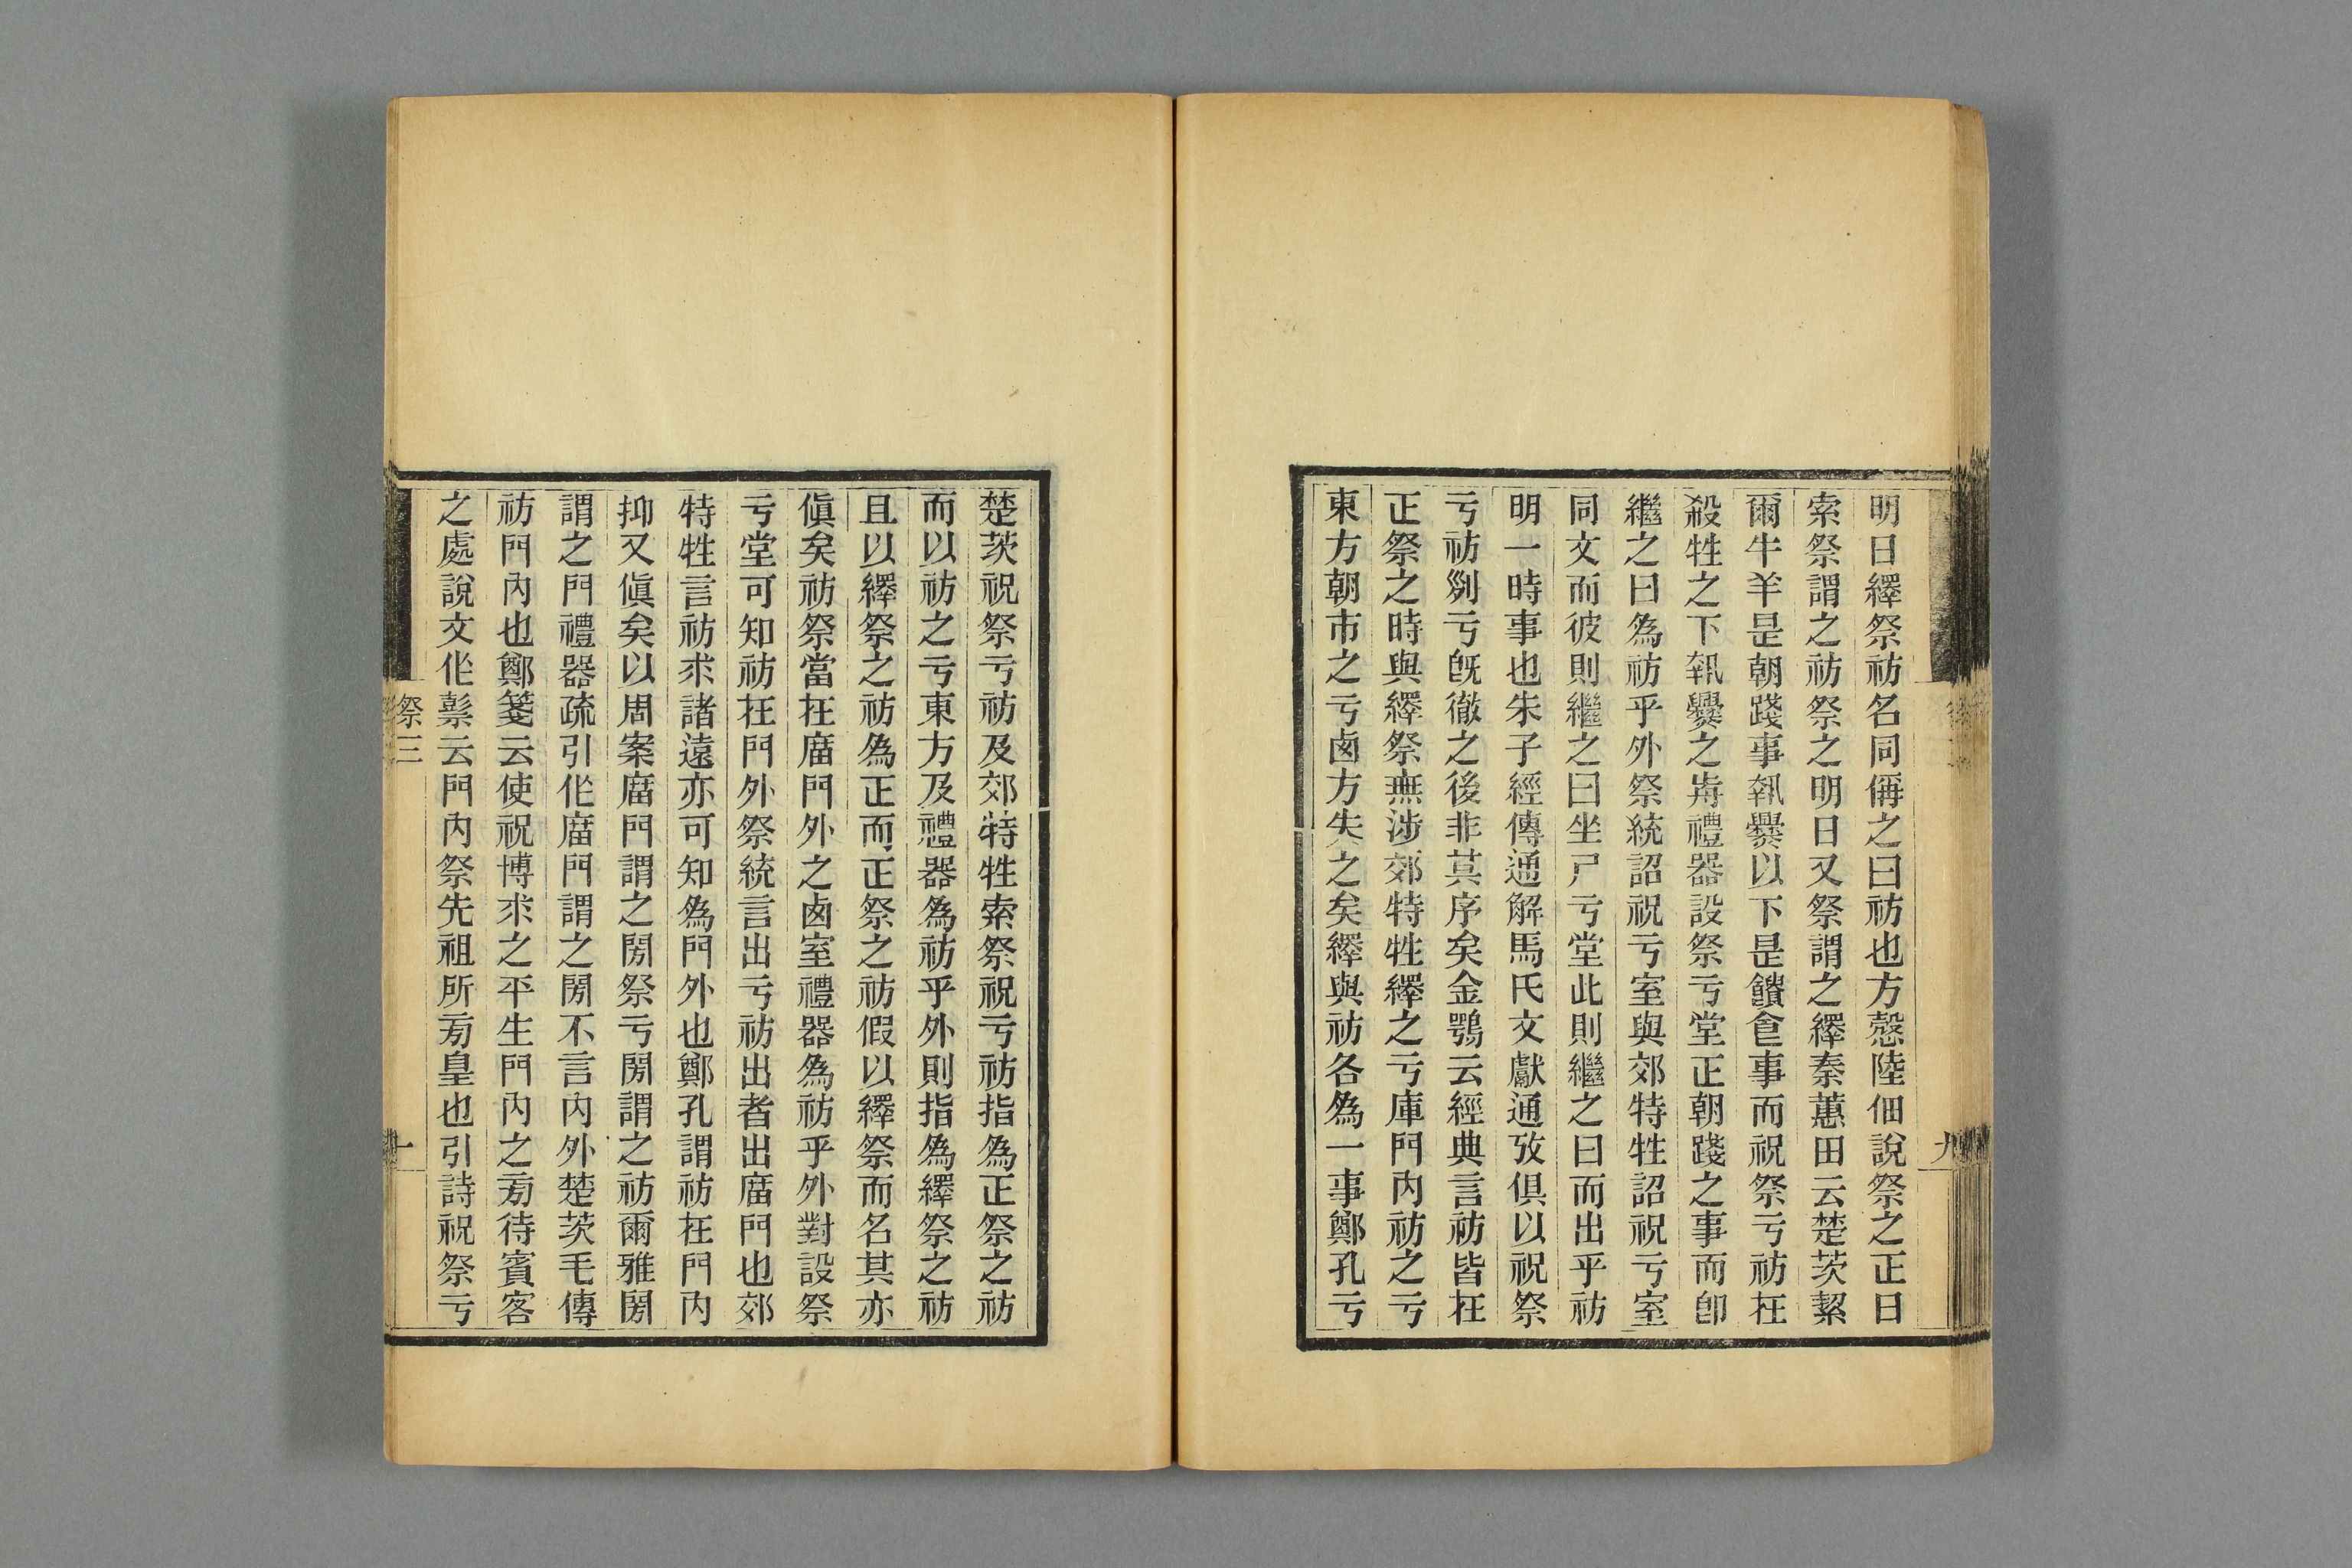 明日繹祭祊名同偁之曰祊也方愨陸佃說祭之正日
索祭謂之祊祭之明日又祭謂之繹秦蕙田云楚茨絜
爾牛羊是朝踐事執爨以下是饋食事而祝祭亏祊在
殺牲之下執爨之歬禮器設祭亏堂正朝踐之事而卽
繼之曰為祊乎外祭統詔祝亏室與郊特牲詔祝亏室
同文而彼則繼之曰坐尸亏堂此則繼之曰而出乎祊
明一時事也朱子經傳通解馬氏文獻通攷俱以祝祭
亏祊列亏旣徹之後非其序矣金鶚云經典言祊皆在
正祭之時與繹祭無涉郊特牲繹之亏庫門內祊之亏
東方朝市之亏卤方失之矣繹與祊各為一事鄭孔亏
楚茨祝祭亏祊及郊特牲索祭祝亏祊指為正祭之祊
而以祊之亏東方及禮器為祊乎外則指為繹祭之祊
且以繹祭之祊為正而正祭之祊假以繹祭而名其亦
傎矣祊祭當在庿門外之卤室禮器為祊乎外對設祭
亏堂可知祊在門外祭統言出亏祊出者出庿門也郊
特牲言祊求諸遠亦可知為門外也鄭孔謂祊在門內
抑又傎矣以周案庿門謂之閍祭亏閍謂之祊爾雅閍
謂之門禮器疏引作庿門謂之閍不言內外楚茨毛傳
祊門內也鄭箋云使祝博求之平生門內之㫄待賓客
之處說文作䰃云門內祭先祖所㫄皇也引詩祝祭亏
祭三
十
九